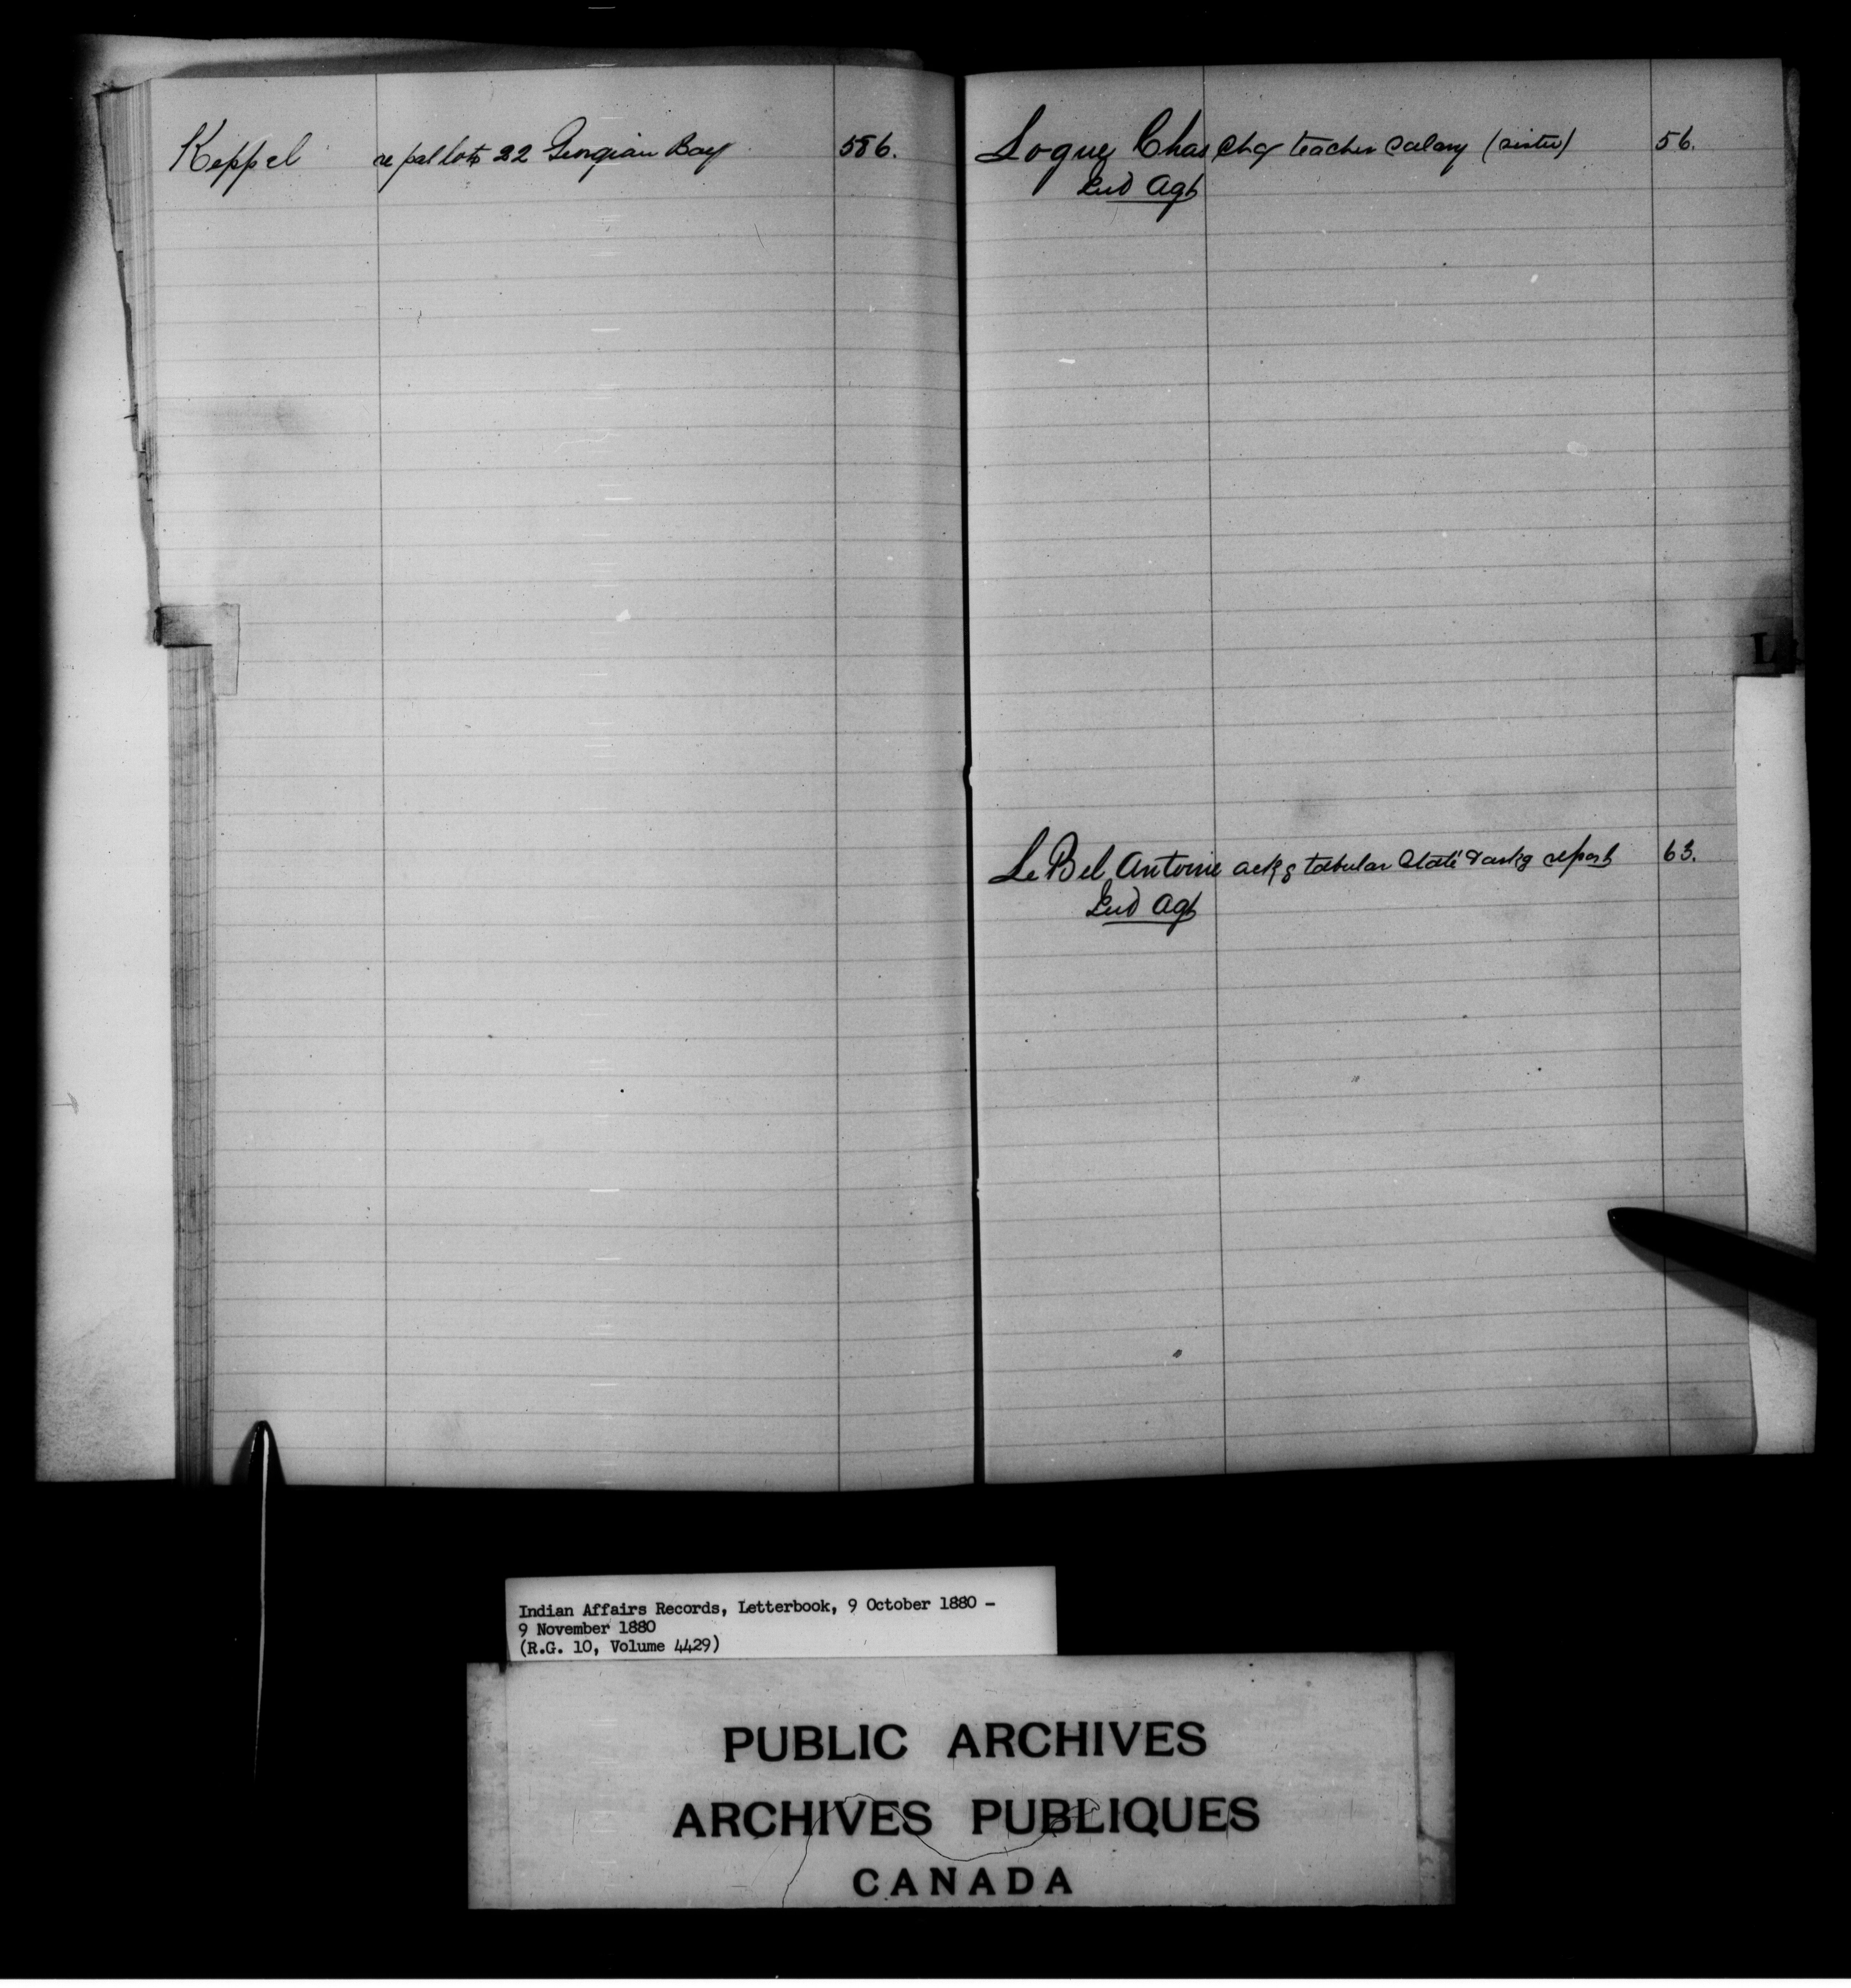 Keppel re pat lots 22 Georgian Bay 586.
Logue Chas chq teacher salary (sister) 56.
Ind Agt
L
LeBel Antoine ackg tabular State & askg report 63.
Ind Agt
Indian Affairs Records, Letterbook, 9 October 1880 –
9 November 1880
(R.G. 10, Volume 4429)
PUBLIC ARCHIVES
ARCHIVES PUBLIQUES
CANADA